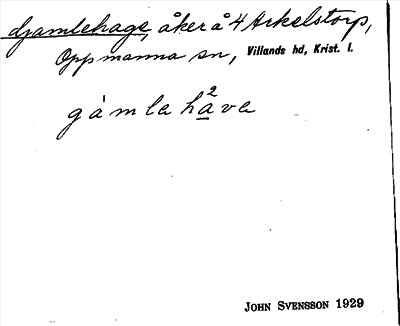 djamlehage, åker å 4 Arkelstorp,
Oppmanna sn, Villands hd, Krist. l.
gàmla hа̲²va
JOHN SVENSSON 1929